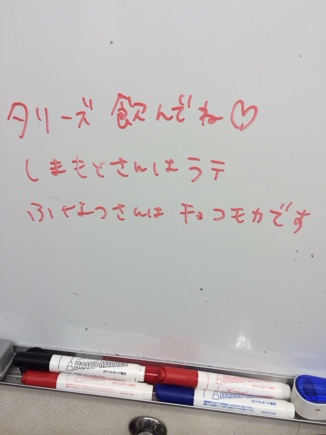 タリーズ 飲んでね♡
しまもとさんはラテ
ふくまつさんは チョコモカです
BOARD MARKER